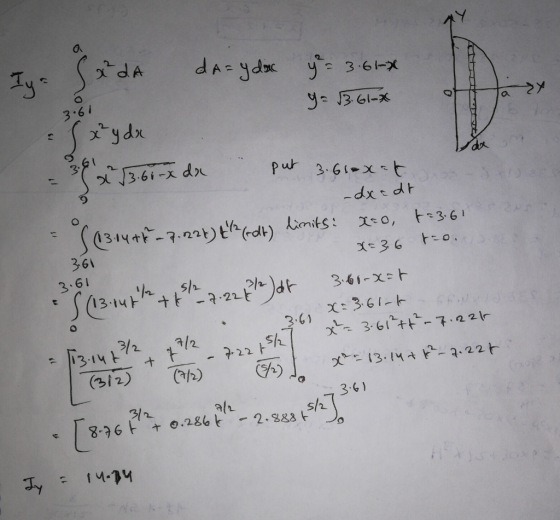 I_y = ∫₀ᵃ x² dA    dA = y dx    y² = 3.61-x
y = √(3.61-x)
= ∫₀^3.61 x² y dx
= ∫₀^3.61 x² √(3.61-x) dx    put 3.61-x = t
-dx = dt
= ∫_3.61^0 (13.14+t² - 7.22t) t^1/2 (-dt)    limits: x=0, t=3.61
x=3.6 t=0.
= ∫₀^3.61 (13.14 t^1/2 + t^5/2 - 7.22 t^3/2) dt    3.61-x = t
x = 3.61-t
= [13.14 t^3/2/(3/2) + t^7/2/(7/2) - 7.22 t^5/2/(5/2)]₀^3.61    x² = 3.61² + t² - 7.22t
x² = 13.14 + t² - 7.22t
= [8.76 t^3/2 + 0.286 t^7/2 - 2.888 t^5/2]₀^3.61
I_y = 14.74
Y
0
a
X
dx